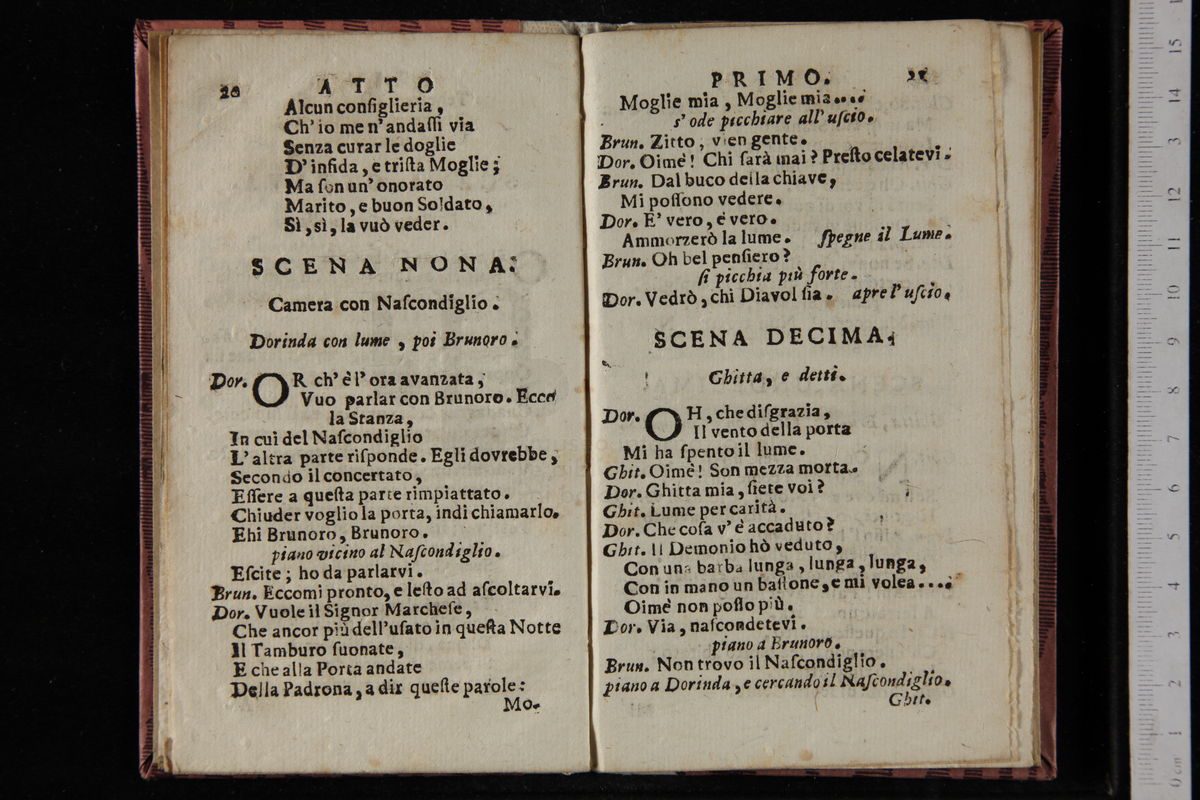 20 ATTO
Alcun conſiglieria,
Ch' io me n' andaſſi via
Senza curar le doglie
D' infida, e triſta Moglie;
Ma ſon un' onorato
Marito, e buon Soldato,
Sì, sì, la vuò veder.
SCENA NONA.
Camera con Naſcondiglio.
Dorinda con lume, poi Brunoro.
Dor. OR ch' è l' ora avanzata,
Vuo parlar con Brunoro. Ecco
la Stanza,
In cui del Naſcondiglio
L' altra parte riſponde. Egli dovrebbe,
Secondo il concertato,
Eſſere a queſta parte rimpiattato.
Chiuder voglio la porta, indi chiamarlo.
Ehi Brunoro, Brunoro.
piano vicino al Naſcondiglio.
Eſcite; ho da parlarvi.
Brun. Eccomi pronto, e leſto ad aſcoltarvi.
Dor. Vuole il Signor Marcheſe,
Che ancor più dell'uſato in queſta Notte
Il Tamburo ſuonate,
E che alla Porta andate
Della Padrona, a dir queſte parole:
Mo-
PRIMO. 21
Moglie mia, Moglie mia....
s' ode picchiare all' uſcio.
Brun. Zitto, vien gente.
Dor. Oimè! Chi ſarà mai? Preſto celatevi.
Brun. Dal buco della chiave,
Mi poſſono vedere.
Dor. E' vero, è vero.
Ammorzerò la lume. ſpegne il Lume.
Brun. Oh bel penſiero?
ſi picchia più forte.
Dor. Vedrò, chi Diavol ſia. apre l' uſcio.
SCENA DECIMA.
Ghitta, e detti.
Dor. OH, che diſgrazia,
Il vento della porta
Mi ha ſpento il lume.
Ghit. Oimè! Son mezza morta.
Dor. Ghitta mia, ſiete voi?
Ghit. Lume per carità.
Dor. Che coſa v' è accaduto?
Ghit. Il Demonio hò veduto,
Con una barba lunga, lunga, lunga,
Con in mano un baſtone, e mi volea....
Oimè non poſſo più.
Dor. Via, naſcondetevi.
piano a Brunoro.
Brun. Non trovo il Naſcondiglio.
piano a Dorinda, e cercando il Naſcondiglio.
Ghit.
0 cm 1 2 3 4 5 6 7 8 9 10 11 12 13 14 15